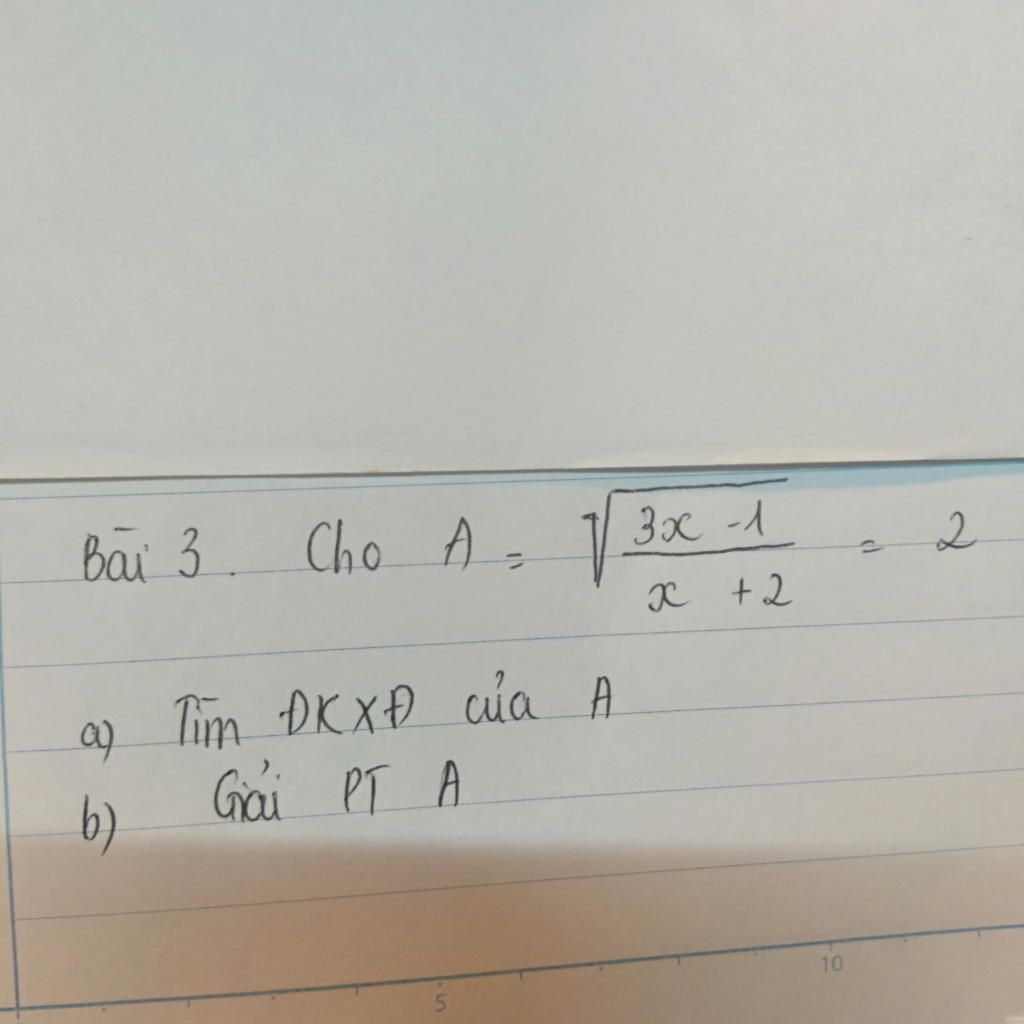 Bài 3. Cho A = √(3x - 1 / x + 2) = 2
a) Tìm ĐKXĐ của A
b) Giải PT A
5 10